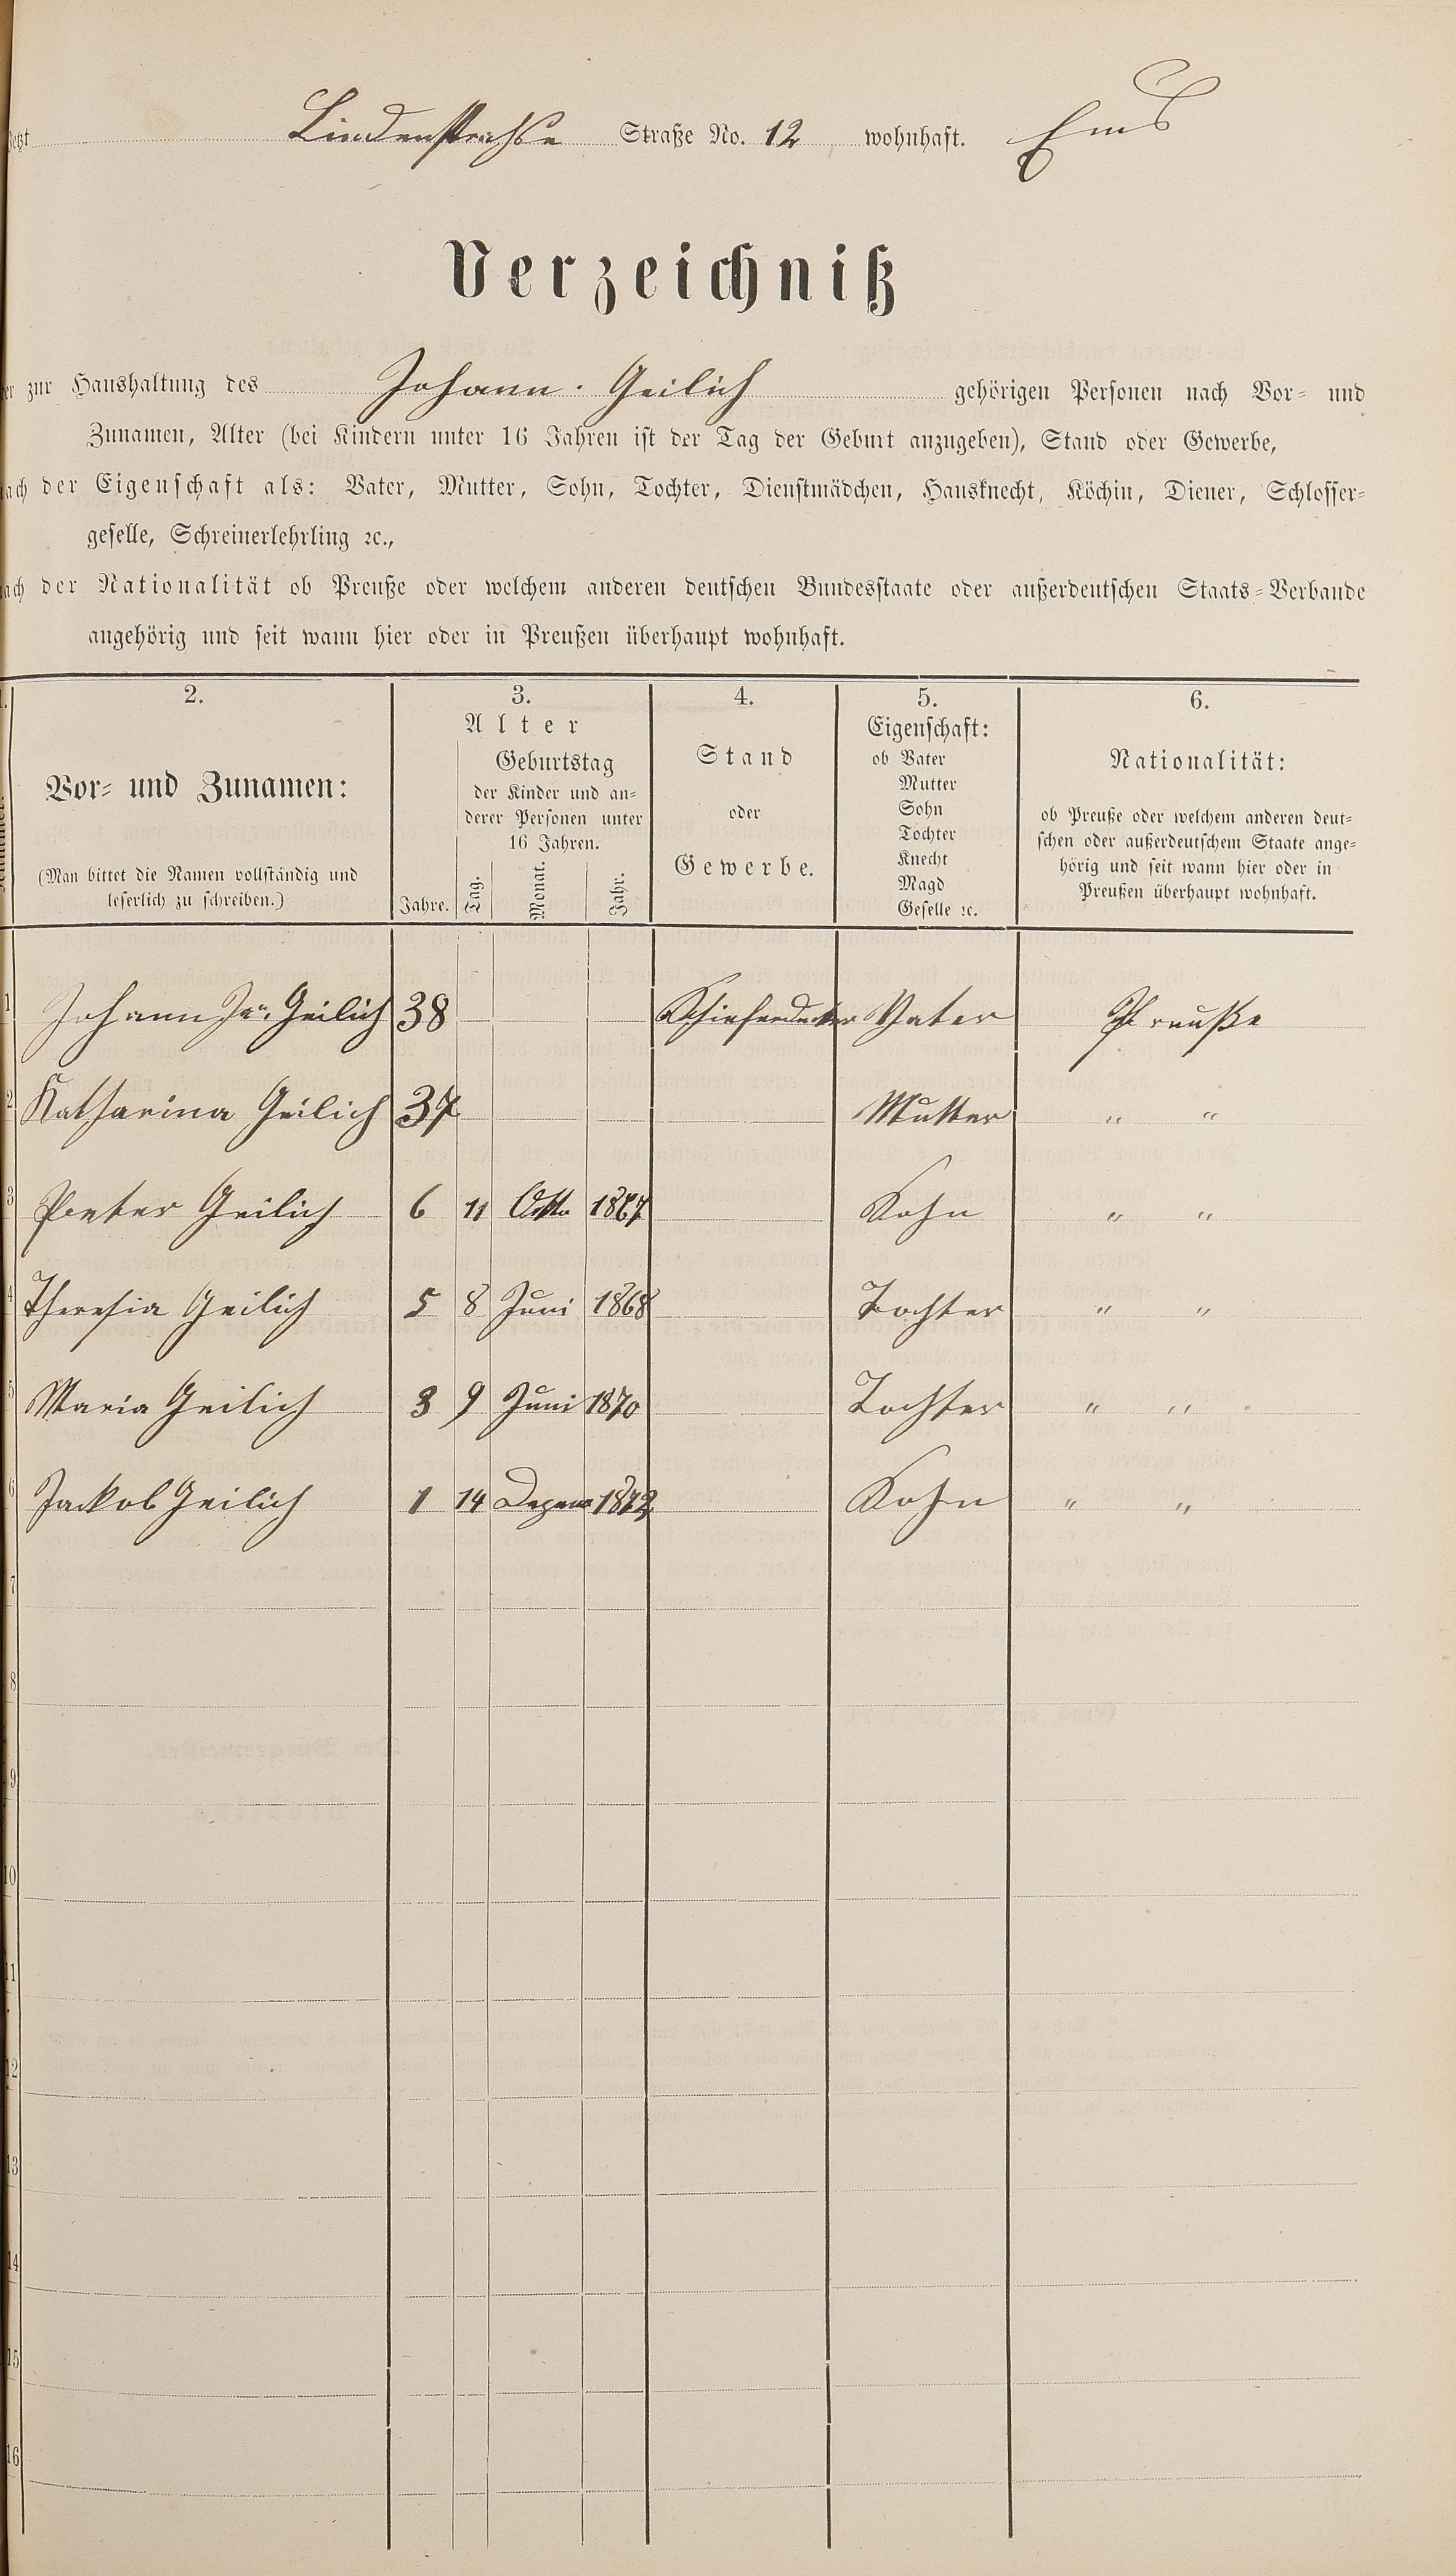 jetzt Lindenstrahse Straße No. 12 wohnhaft. Ems
Verzeichniß
der zur Haushaltung des Johann Geilich gehörigen Personen nach Vor- und
Zunamen, Alter (bei Kindern unter 16 Jahren ist der Tag der Geburt anzugeben), Stand oder Gewerbe,
nach der Eigenschaft als: Vater, Mutter, Sohn, Tochter, Dienstmädchen, Hausknecht, Köchin, Diener, Schlosser-
geselle, Schreinerlehrling ꝛc.,
nach der Nationalität ob Preuße oder welchem anderen deutschen Bundesstaate oder außerdeutschen Staats-Verbande
angehörig und seit wann hier oder in Preußen überhaupt wohnhaft.
1.
2.
Vor- und Zunamen:
(Man bittet die Namen vollständig und
leserlich zu schreiben.)
3.
Alter
Geburtstag
der Kinder und an-
derer Personen unter
16 Jahren.
Jahre. Tag. Monat. Jahr.
4.
Stand
oder
Gewerbe.
5.
Eigenschaft:
ob Vater
Mutter
Sohn
Tochter
Knecht
Magd
Geselle ꝛc.
6.
Nationalität:
ob Preuße oder welchem anderen deut-
schen oder außerdeutschem Staate ange-
hörig und seit wann hier oder in
Preußen überhaupt wohnhaft.
1 Johann Geilich 38 Schieferdecker Vater Preuße
2 Katharina Geilich 37 Mutter " "
3 Peter Geilich 6 11 1867 Sohn " "
4 Theresia Geilich 5 8 Juni 1868 Tochter " "
5 Maria Geilich 3 9 Juni 1870 Tochter " "
6 Jackob Geilich 1 14 1872 Sohn " "
7
8
9
10
11
12
13
14
15
16